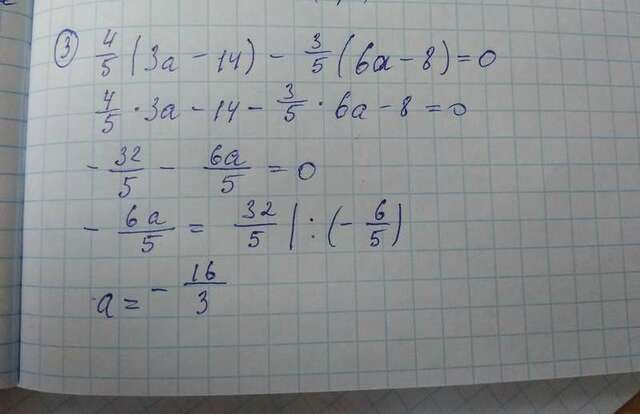 ③ 4/5 (3a - 14) - 3/5 (6a - 8) = 0
4/5 · 3a - 14 - 3/5 · 6a - 8 = 0
- 32/5 - 6a/5 = 0
- 6a/5 = 32/5 | : (- 6/5)
a = - 16/3